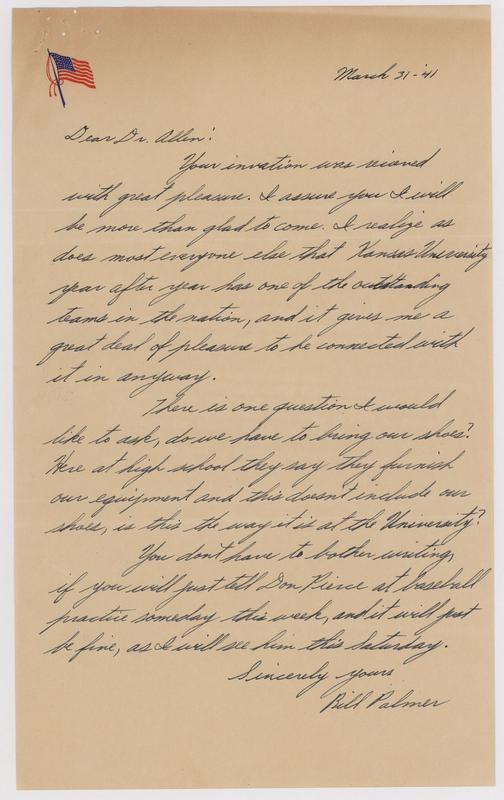 March 31-'41
Dear Dr. Allen:
Your invation was reieved
with great pleasure. I assure you I will
be more than glad to come. I realize as
does most everyone else that Kansas University
year after year has one of the outstanding
teams in the nation, and it gives me a
great deal of pleasure to be connected with
it in anyway.
There is one question I would
like to ask, do we have to bring our shoes?
Here at high school they say they furnish
our equipment and this doesn't include our
shoes, is this the way it is at the University?
You don't have to bother writing,
if you will just tell Don Pierce at baseball
practice someday this week, and it will just
be fine, as I will see him this Saturday.
Sincerely yours
Bill Palmer